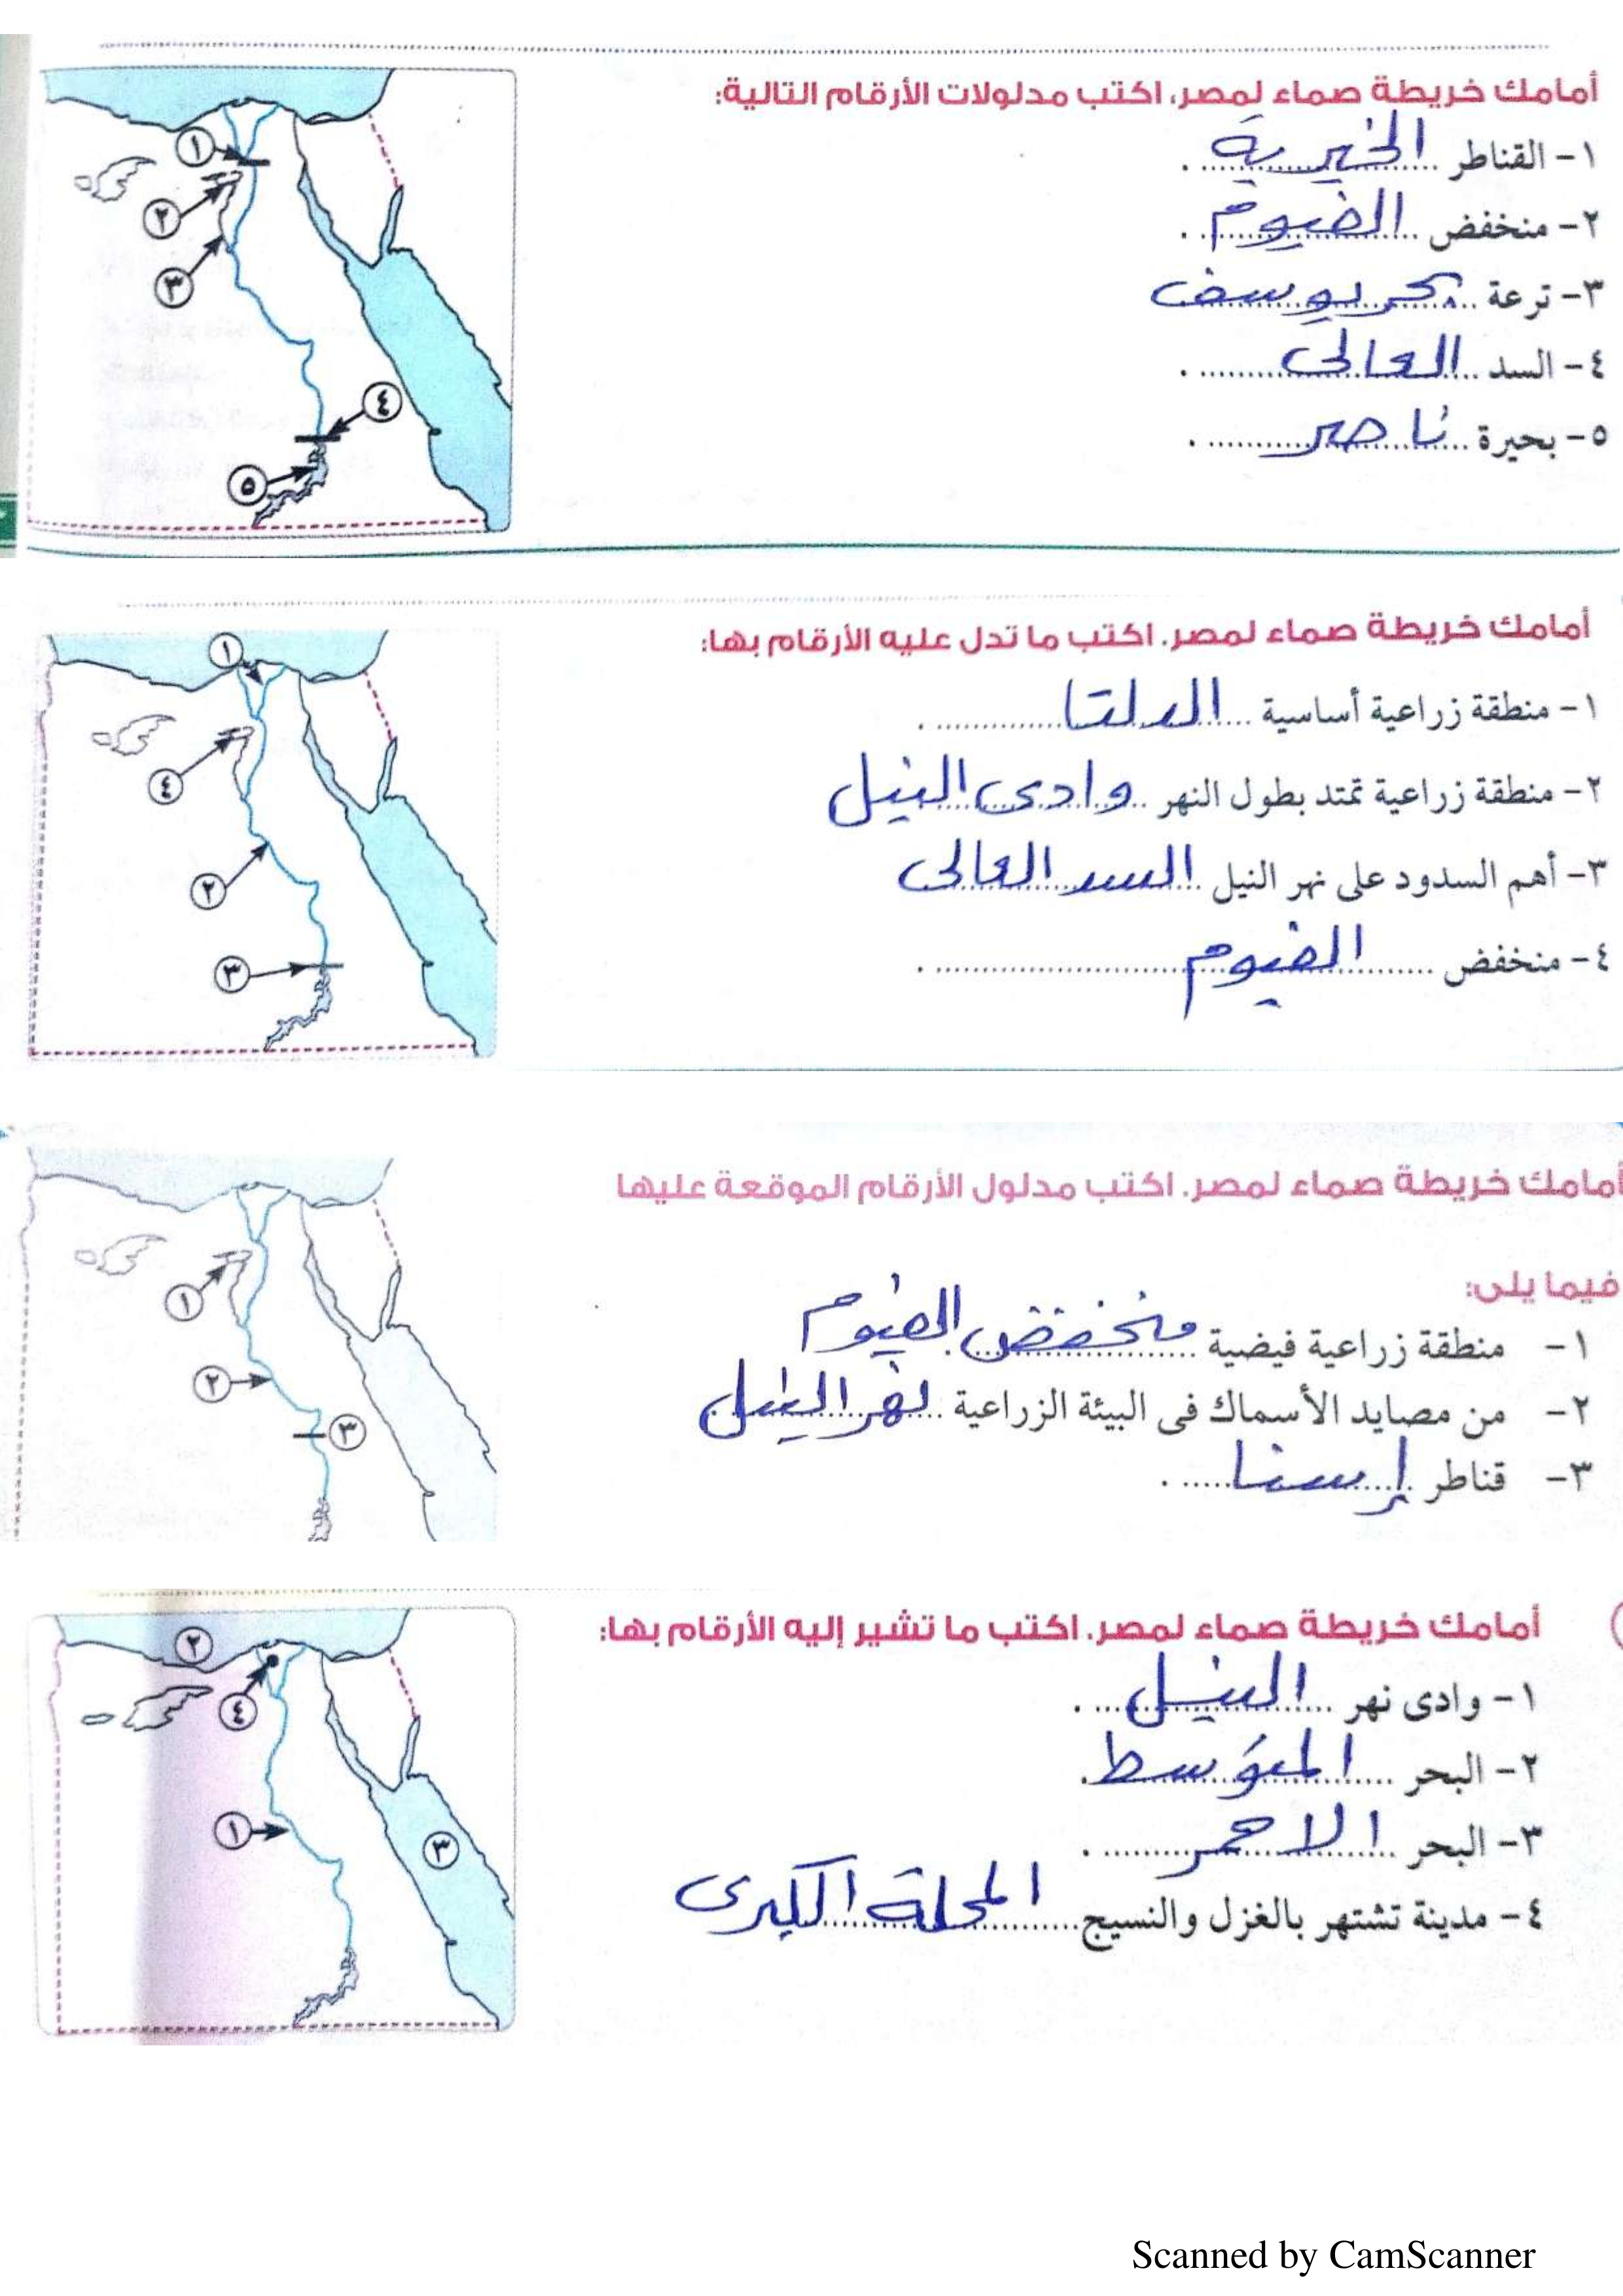 أمامك خريطة صماء لمصر، اكتب مدلولات الأرقام التالية:
١- القناطر الخيرية .
٢- منخفض الفيوم .
٣- ترعة بحر يوسف
٤- السد العالى .
٥- بحيرة ناصر .
١
٢
٣
٤
٥
أمامك خريطة صماء لمصر. اكتب ما تدل عليه الأرقام بها:
١- منطقة زراعية أساسية الدلتا .
٢- منطقة زراعية تمتد بطول النهر وادى النيل
٣- أهم السدود على نهر النيل السد العالى
٤- منخفض الفيوم .
١
٤
٢
٣
أمامك خريطة صماء لمصر. اكتب مدلول الأرقام الموقعة عليها
فيما يلى:
١- منطقة زراعية فيضية منخفض الفيوم
٢- من مصايد الأسماك فى البيئة الزراعية نهر النيل
٣- قناطر إسنا .
١
٢
٣
أمامك خريطة صماء لمصر. اكتب ما تشير إليه الأرقام بها:
١- وادى نهر النيل .
٢- البحر المتوسط .
٣- البحر الاحمر .
٤- مدينة تشتهر بالغزل والنسيج المحلة الكبرى
٢
٤
١
٣
Scanned by CamScanner